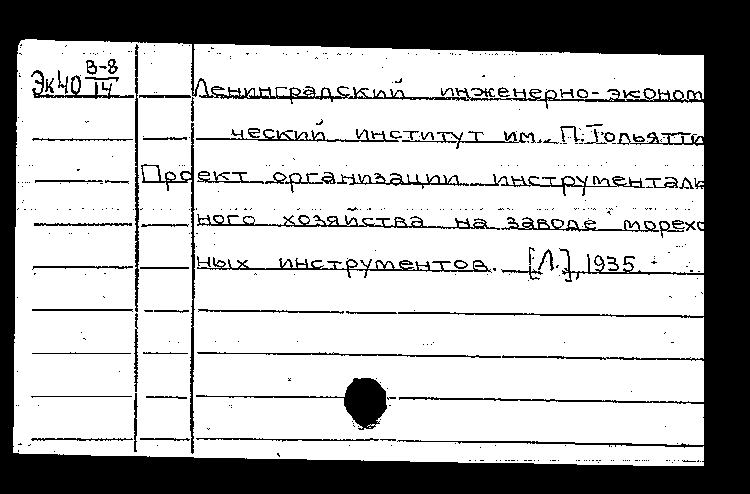 Эк40 В-8/14
Ленинградский инженерно-эконом
ческий институт им. П.Тольятти
Проект организации инструменталь
ного хозяйства на заводе морехо
ных инструментов. [Л.], 1935.